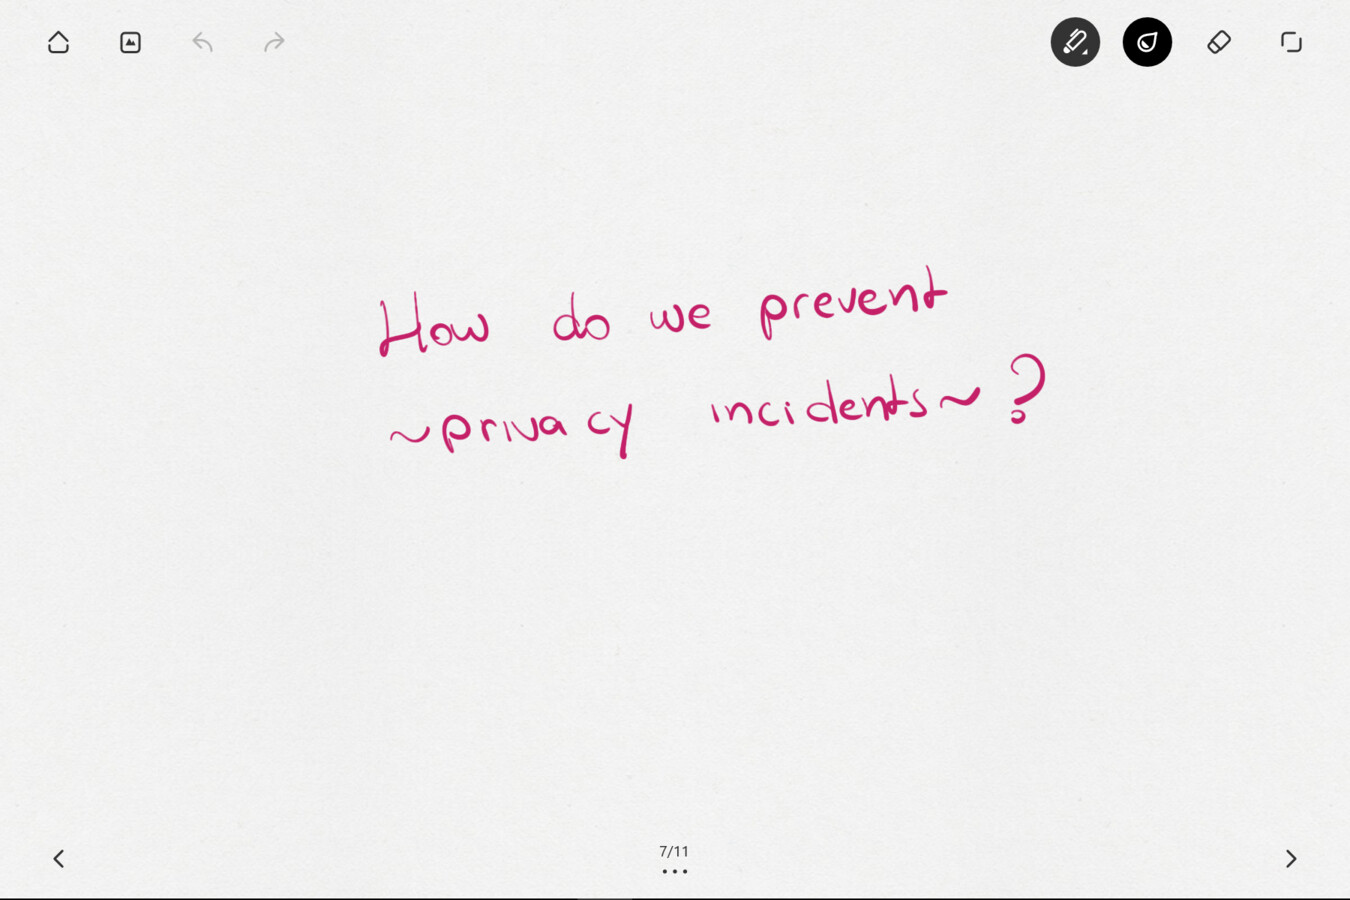 How do we prevent
~privacy incidents~?
7/11